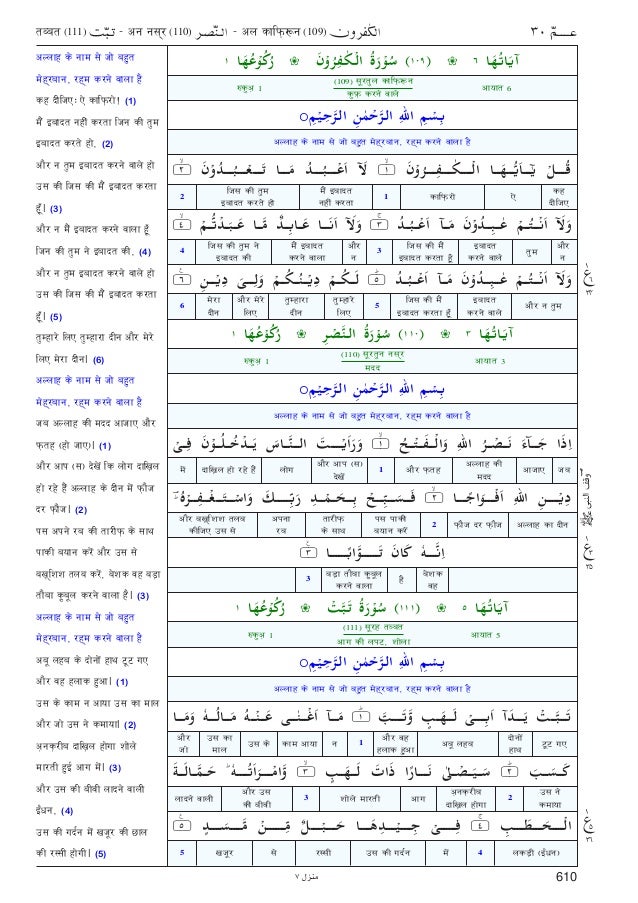 तब्बत (111) تَبَّتْ - अन नसर् (110) النَّصر - अल काफ़िरून (109) الكٰفرون عـمّ ٣٠
अल्लाह के नाम से जो बहुत
मेह्‌रबान, रह्‌म करने वाला है
कह दीजिए: ऐ काफ़िरो! (1)
मैं इबादत नहीं करता जिन की तुम
इबादत करते हो, (2)
और न तुम इबादत करने वाले हो
उस की जिस की मैं इबादत करता
हूँ। (3)
और न मैं इबादत करने वाला हूँ
जिन की तुम ने इबादत की, (4)
और न तुम इबादत करने वाले हो
उस की जिस की मैं इबादत करता
हूँ। (5)
तुम्हारे लिए तुम्हारा दीन और मेरे
लिए मेरा दीन। (6)
अल्लाह के नाम से जो बहुत
मेह्‌रबान, रह्‌म करने वाला है
जब अल्लाह की मदद आजाए और
फ़तह (हो जाए)। (1)
और आप (स) देखें कि लोग दाख़िल
हो रहे हैं अल्लाह के दीन में फ़ौज
दर फ़ौज। (2)
पस अपने रब की तारीफ़ के साथ
पाकी बयान करें और उस से
बख़्शिश तलब करें, बेशक वह बड़ा
तौबा क़ुबूल करने वाला है। (3)
अल्लाह के नाम से जो बहुत
मेह्‌रबान, रह्‌म करने वाला है
अबू लहब के दोनों हाथ टूट गए
और वह हलाक हुआ। (1)
उस के काम न आया उस का माल
और जो उस ने कमाया। (2)
अ़नक़रीब दाख़िल होगा शोले
मारती हुई आग में। (3)
और उस की बीवी लादने वाली
ईंधन, (4)
उस की गर्दन में खजूर की छाल
की रस्सी होगी। (5)
اٰيَاتُهَا ٦ ❀ (١٠٩) سُوْرَةُ الْكٰفِرُوْنَ ❀ رُكُوْعُهَا ١
रुकुअ़ 1 (109) सूरतुल काफ़िरून आयात 6
कुफ़्र करने वाले
بِسْمِ اللهِ الرَّحْمٰنِ الرَّحِيْمِ ○
अल्लाह के नाम से जो बहुत मेह्‌रबान, रह्‌म करने वाला है
قُلْ يٰٓاَيُّهَا الْكٰفِرُوْنَ ١ لَآ اَعْبُدُ مَا تَعْبُدُوْنَ ٢
2 जिस की तुम इबादत करते हो मैं इबादत नहीं करता 1 काफ़िरो ऐ कह दीजिए
وَلَآ اَنْتُمْ عٰبِدُوْنَ مَآ اَعْبُدُ ٣ وَلَآ اَنَا عَابِدٌ مَّا عَبَدْتُّمْ ٤
4 जिस की तुम ने इबादत की मैं इबादत करने वाला और न 3 जिस की मैं इबादत करता हूँ इबादत करने वाले तुम और न
وَلَآ اَنْتُمْ عٰبِدُوْنَ مَآ اَعْبُدُ ٥ لَكُمْ دِيْنُكُمْ وَلِيَ دِيْنِ ٦
6 मेरा दीन और मेरे लिए तुम्हारा दीन तुम्हारे लिए 5 जिस की मैं इबादत करता हूँ इबादत करने वाले और न तुम
اٰيَاتُهَا ٣ ❀ (١١٠) سُوْرَةُ النَّصْرِ ❀ رُكُوْعُهَا ١
रुकुअ़ 1 (110) सूरतुन नसर् आयात 3
मदद
بِسْمِ اللهِ الرَّحْمٰنِ الرَّحِيْمِ ○
अल्लाह के नाम से जो बहुत मेह्‌रबान, रह्‌म करने वाला है
اِذَا جَآءَ نَصْرُ اللهِ وَالْفَتْحُ ١ وَرَاَيْتَ النَّاسَ يَدْخُلُوْنَ فِيْ
में दाख़िल हो रहे हैं लोग और आप (स) देखें 1 और फ़तह अल्लाह की मदद आजाए जब
دِيْنِ اللهِ اَفْوَاجًا ٢ فَسَبِّحْ بِحَمْدِ رَبِّكَ وَاسْتَغْفِرْهُ
और बख़्शिश तलब कीजिए उस से अपना रब तारीफ़ के साथ पस पाकी बयान करें 2 फ़ौज दर फ़ौज अल्लाह का दीन
اِنَّهٗ كَانَ تَوَّابًا ٣
3 बड़ा तौबा क़ुबूल करने वाला है बेशक वह
اٰيَاتُهَا ٥ ❀ (١١١) سُوْرَةُ تَبَّتْ ❀ رُكُوْعُهَا ١
रुकुअ़ 1 (111) सूरह तब्बत आयात 5
आग की लपट, शोला
بِسْمِ اللهِ الرَّحْمٰنِ الرَّحِيْمِ ○
अल्लाह के नाम से जो बहुत मेह्‌रबान, रह्‌म करने वाला है
تَبَّتْ يَدَآ اَبِيْ لَهَبٍ وَّتَبَّ ١ مَآ اَغْنٰى عَنْهُ مَالُهٗ وَمَا
और जो उस का माल उस के काम आया न 1 और वह हलाक हुआ अबू लहब दोनों हाथ टूट गए
كَسَبَ ٢ سَيَصْلٰى نَارًا ذَاتَ لَهَبٍ ٣ وَّامْرَاَتُهٗ حَمَّالَةَ
लादने वाली और उस की बीवी 3 शोले मारती आग अ़नक़रीब दाख़िल होगा 2 उस ने कमाया
الْحَطَبِ ٤ فِيْ جِيْدِهَا حَبْلٌ مِّنْ مَّسَدٍ ٥
5 खजूर से रस्सी उस की गर्दन में 4 लकड़ी (ईंधन)
منزل ٧
610